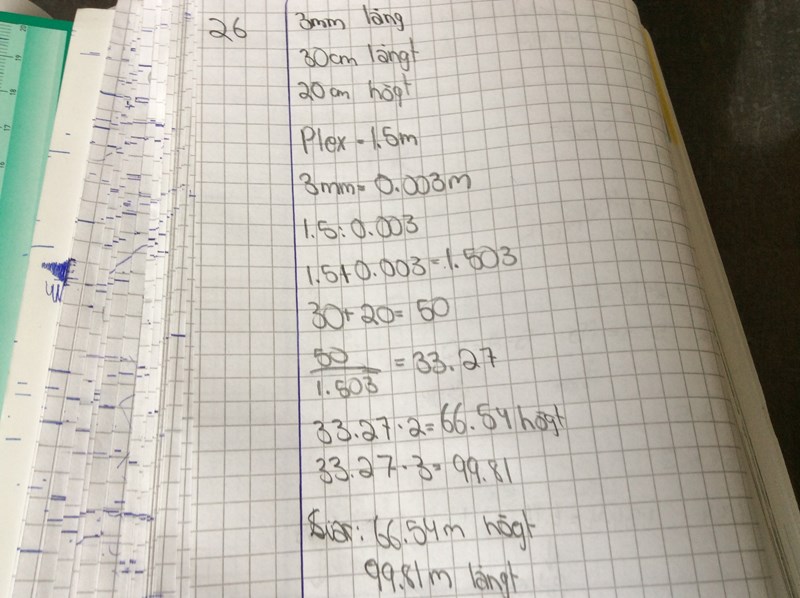 26
3mm lång
30cm långt
20cm högt
Plex - 1.5m
3mm = 0.003m
1.5:0.003
1.5+0.003=1.503
30+20=50
50
1.503
= 33.27
33.27·2=66.54 högt
33.27·3=99.81
66.54m högt
99.81m långt